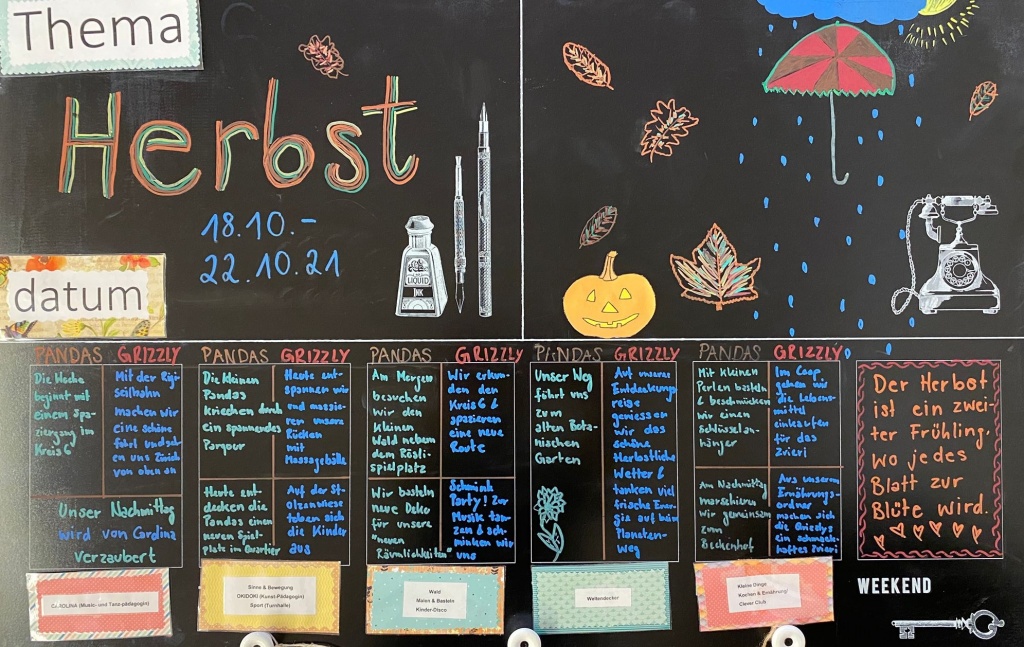 Thema
Herbst
18.10.-
22.10.21
datum
LIQUID
INK
PANDAS GRIZZLY
Die Woche
beginnt mit
einem Spa-
ziergang im
Kreis 6
Mit der Rigi-
seilbahn
machen wir
eine schöne
fahrt und seh-
en uns Zürich
von oben an
Unser Nachmittag
wird von Carolina
verzaubert
CAROLINA (Music- und Tanz-pädagogin)
PANDAS GRIZZLY
Die kleinen
Pandas
kriechen durch
ein spannendes
Parcour
Heute ent-
spannen wir
und massie-
ren unsere
Rücken
mit
Massagebälle
Heute ent-
decken die
Pandas einen
neuen Spiel-
platz im Quartier
Auf der St-
olzewiese
toben sich
die Kinder
aus
Sinne & Bewegung
OKIDOKI (Kunst-Pädagogin)
Sport (Turnhalle)
PANDAS GRIZZLY
Am Morgen
besuchen
wir den
kleinen
Wald nebem
dem Rösli-
spielplatz
Wir erkun-
den den
Kreis 6 &
spazieren
eine neue
Route
Wir basteln
neue Deko
für unsere
"neuen
Räumlichkeiten"
Schmink
Party! Zur
Musik tan-
zen & sch-
minken wir
uns
Wald
Malen & Basteln
Kinder-Disco
PANDAS GRIZZLY
Unser Weg
führt uns
zum
alten Bota-
nischen
Garten
Auf unsere
Entdeckungs
reise
geniessen
wir das
schöne
Herbstliche
Wetter &
tanken viel
frische Ener-
gie auf beim
Planeten-
Weg
Weltendecker
PANDAS GRIZZLY
Mit kleinen
Perlen basteln
& beschmücken
wir einen
Schlüsselan-
hänger
Im Coop
gehen wir
die Lebens-
mittel
einkaufen
für das
Zvieri
Am Nachmittag
marschieren
wir gemeinsam
zum
Beckenhof
Aus unserem
Ernährungs-
ordner
machen sich
die Grizzlys
ein schmack-
haftes Zvieri
Kleine Dinge
Kochen & Ernährung/
Clever Club
Der Herbst
ist ein zwei-
ter Frühling,
wo jedes
Blatt zur
Blüte wird.
WEEKEND